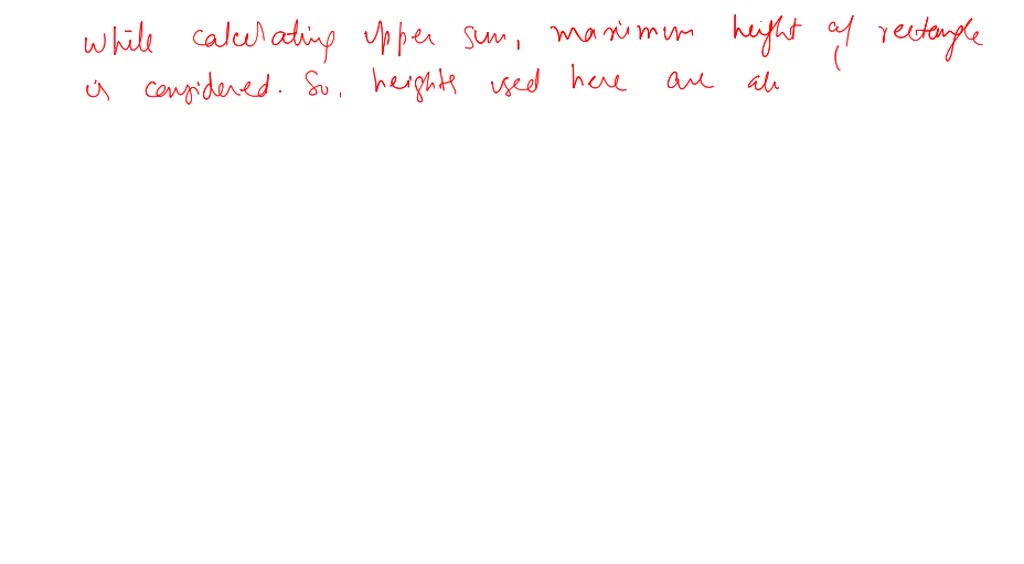 while calculating upper sum, maximum height of rectangle
is considered. So, heights used here are